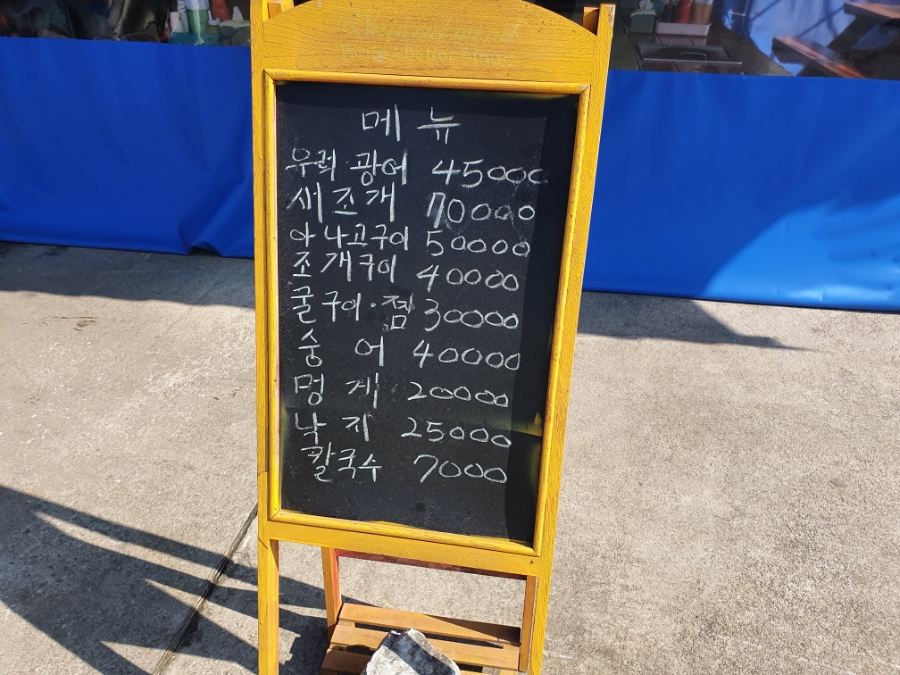 메뉴
우럭·광어 45000
새조개 70000
아나고구이 50000
조개구이 40000
굴구이·찜 30000
숭어 40000
멍게 20000
낙지 25000
칼국수 7000